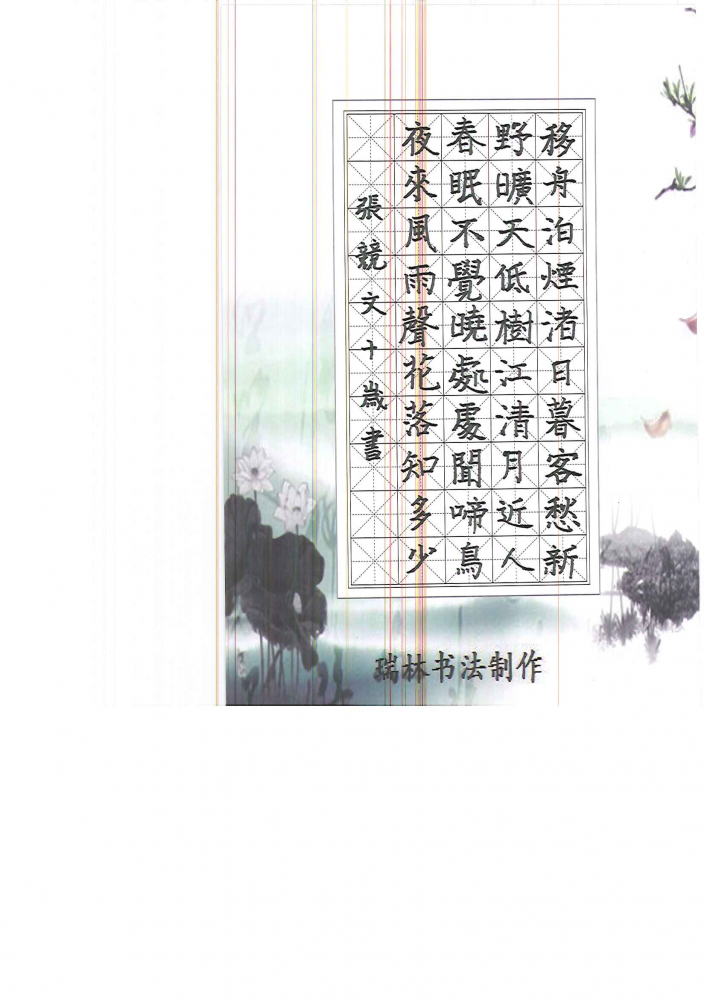 移舟泊煙渚日暮客愁新
野曠天低樹江清月近人
春眠不覺曉處處聞啼鳥
夜來風雨聲花落知多少
張競文十歲書
瑞林书法制作